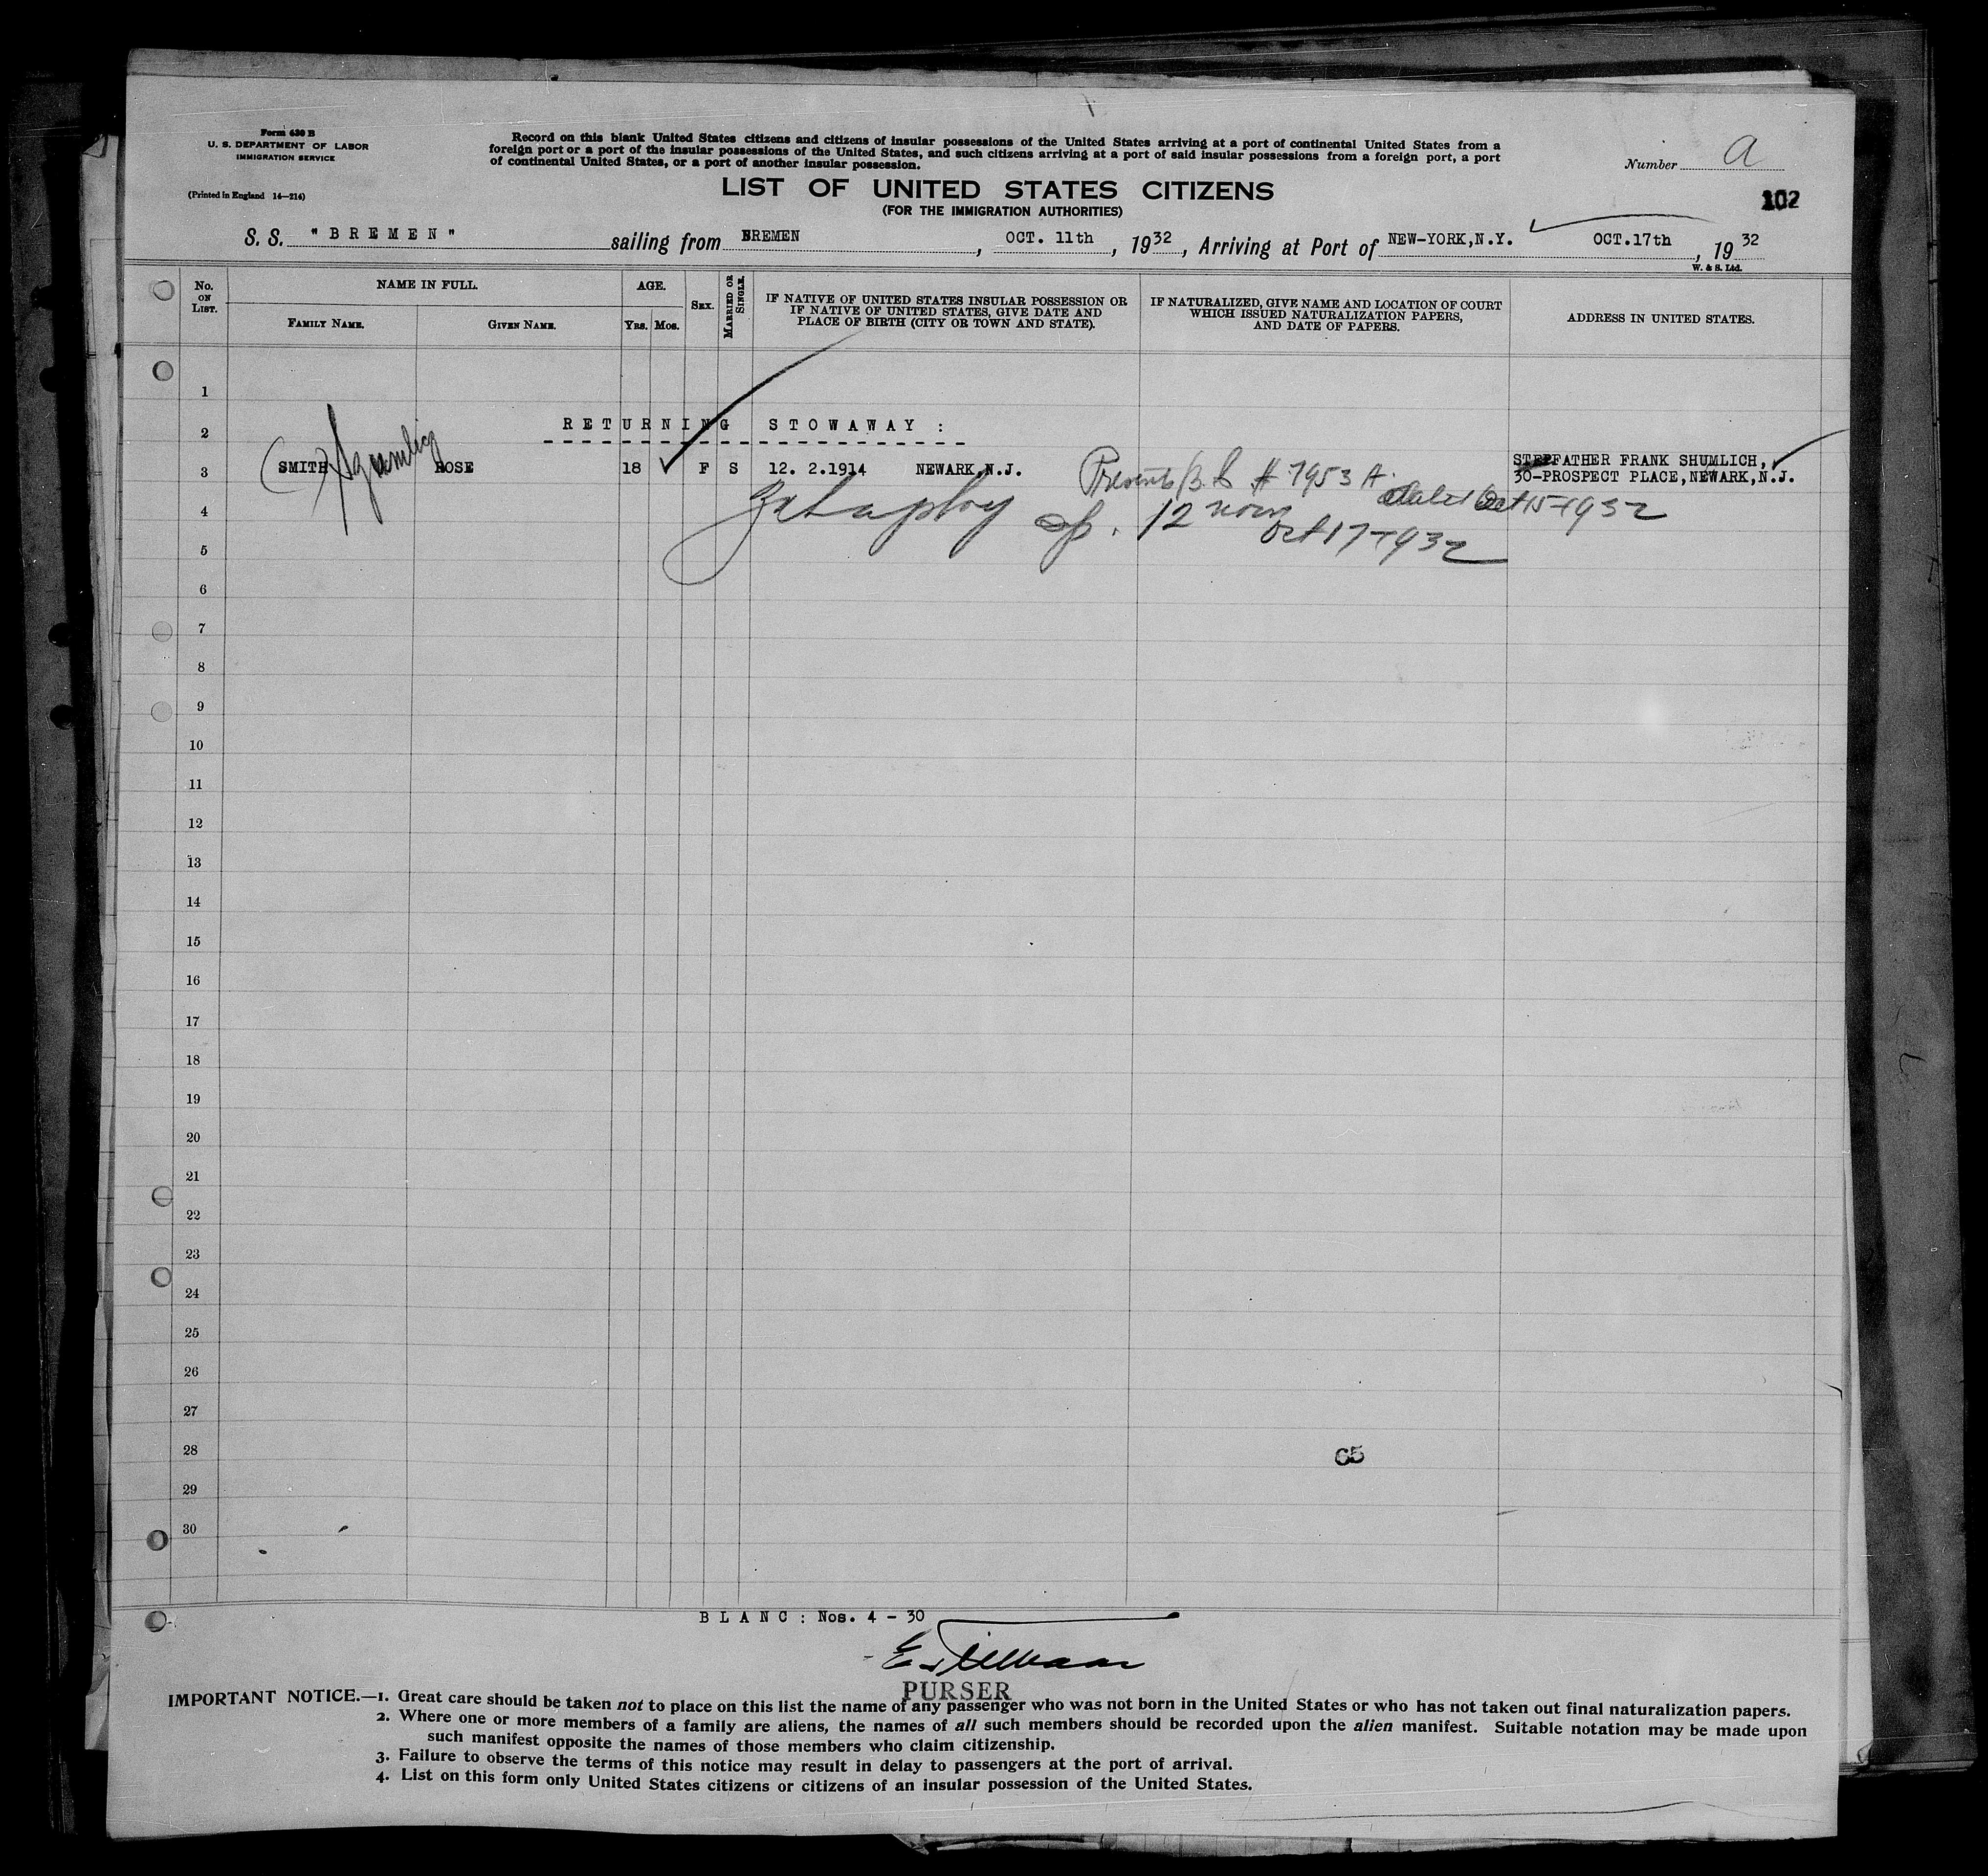 Form 630 B
U. S. DEPARTMENT OF LABOR
IMMIGRATION SERVICE
(Printed in England 14—214)
Record on this blank United States citizens and citizens of insular possessions of the United States arriving at a port of continental United States from a
foreign port or a port of the insular possessions of the United States, and such citizens arriving at a port of said insular possessions from a foreign port, a port
of continental United States, or a port of another insular possession.
Number a
102
LIST OF UNITED STATES CITIZENS
(FOR THE IMMIGRATION AUTHORITIES)
S. S. "BREMEN" sailing from BREMEN, OCT. 11th, 1932, Arriving at Port of NEW-YORK,N.Y. OCT.17th, 1932
W. & S. Ltd.
No. ON LIST.
NAME IN FULL.
FAMILY NAME.
GIVEN NAME.
AGE.
YRS. MOS.
SEX.
MARRIED OR SINGLE.
IF NATIVE OF UNITED STATES INSULAR POSSESSION OR
IF NATIVE OF UNITED STATES, GIVE DATE AND
PLACE OF BIRTH (CITY OR TOWN AND STATE).
IF NATURALIZED, GIVE NAME AND LOCATION OF COURT
WHICH ISSUED NATURALIZATION PAPERS,
AND DATE OF PAPERS.
ADDRESS IN UNITED STATES.
1
2 RETURNING STOWAWAY :
3 (SMITH) ROSE 18 F S 12. 2.1914 NEWARK,N.J. Presents B.C # 7953 A. dated Oct 15-1932 STEPFATHER FRANK SHUMLICH,
30-PROSPECT PLACE,NEWARK,N.J.
4 12 noon
Oct 17-1932
5
6
7
8
9
10
11
12
13
14
15
16
17
18
19
20
21
22
23
24
25
26
27
28 65
29
30
BLANC: Nos. 4 - 30
PURSER
IMPORTANT NOTICE.—1. Great care should be taken not to place on this list the name of any passenger who was not born in the United States or who has not taken out final naturalization papers.
2. Where one or more members of a family are aliens, the names of all such members should be recorded upon the alien manifest. Suitable notation may be made upon
such manifest opposite the names of those members who claim citizenship.
3. Failure to observe the terms of this notice may result in delay to passengers at the port of arrival.
4. List on this form only United States citizens or citizens of an insular possession of the United States.